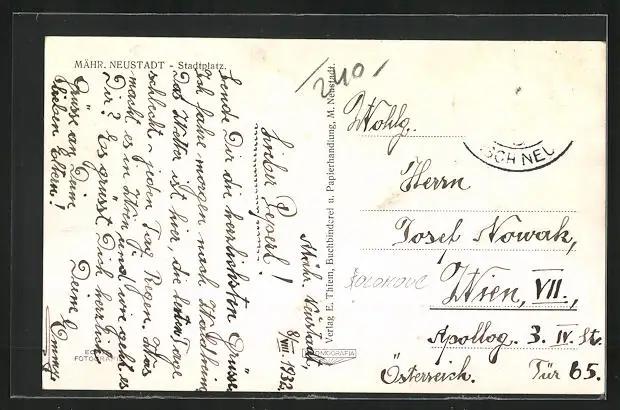 MÄHR. NEUSTADT - Stadtplatz.
240.-
Mähr. Neustadt,
8/VIII. 1932.
Lieber Peperl!
Sende Dir die herzlichsten Grüsse
Ich fahre morgen nach Waldheim
Das Wetter ist hier, die letzten Tage
schlecht, jeden Tag Regen. Was
macht es in Wien und wie geht es
Dir? Es grüsst Dich herzlich
Deine Emmy
Grüsse an Deine
lieben Eltern!
Verlag E. Thiem, Buchbinderei u. Papierhandlung, M. Neustadt.
SCH NEU
Wohlg.
Herrn
Josef Nowak,
Wien, VII.,
Apollog. 3. IV. St.
Österreich. Tür 65.
FOTOGRAF